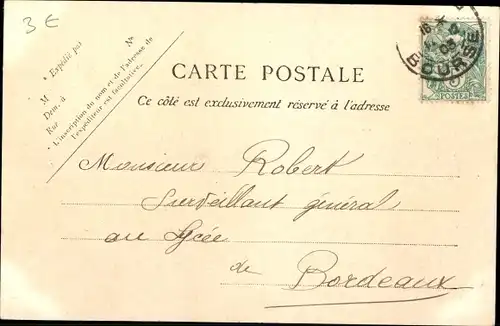 3 €
Expédié par
M
Dem. à
Rue
N°
L'inscription du nom et de l'adresse de
l'expéditeur est facultative.
CARTE POSTALE
Ce côté est exclusivement réservé à l'adresse
BOURSE
POSTES
Monsieur Robert
Surveillant général
au Lycée
de
Bordeaux